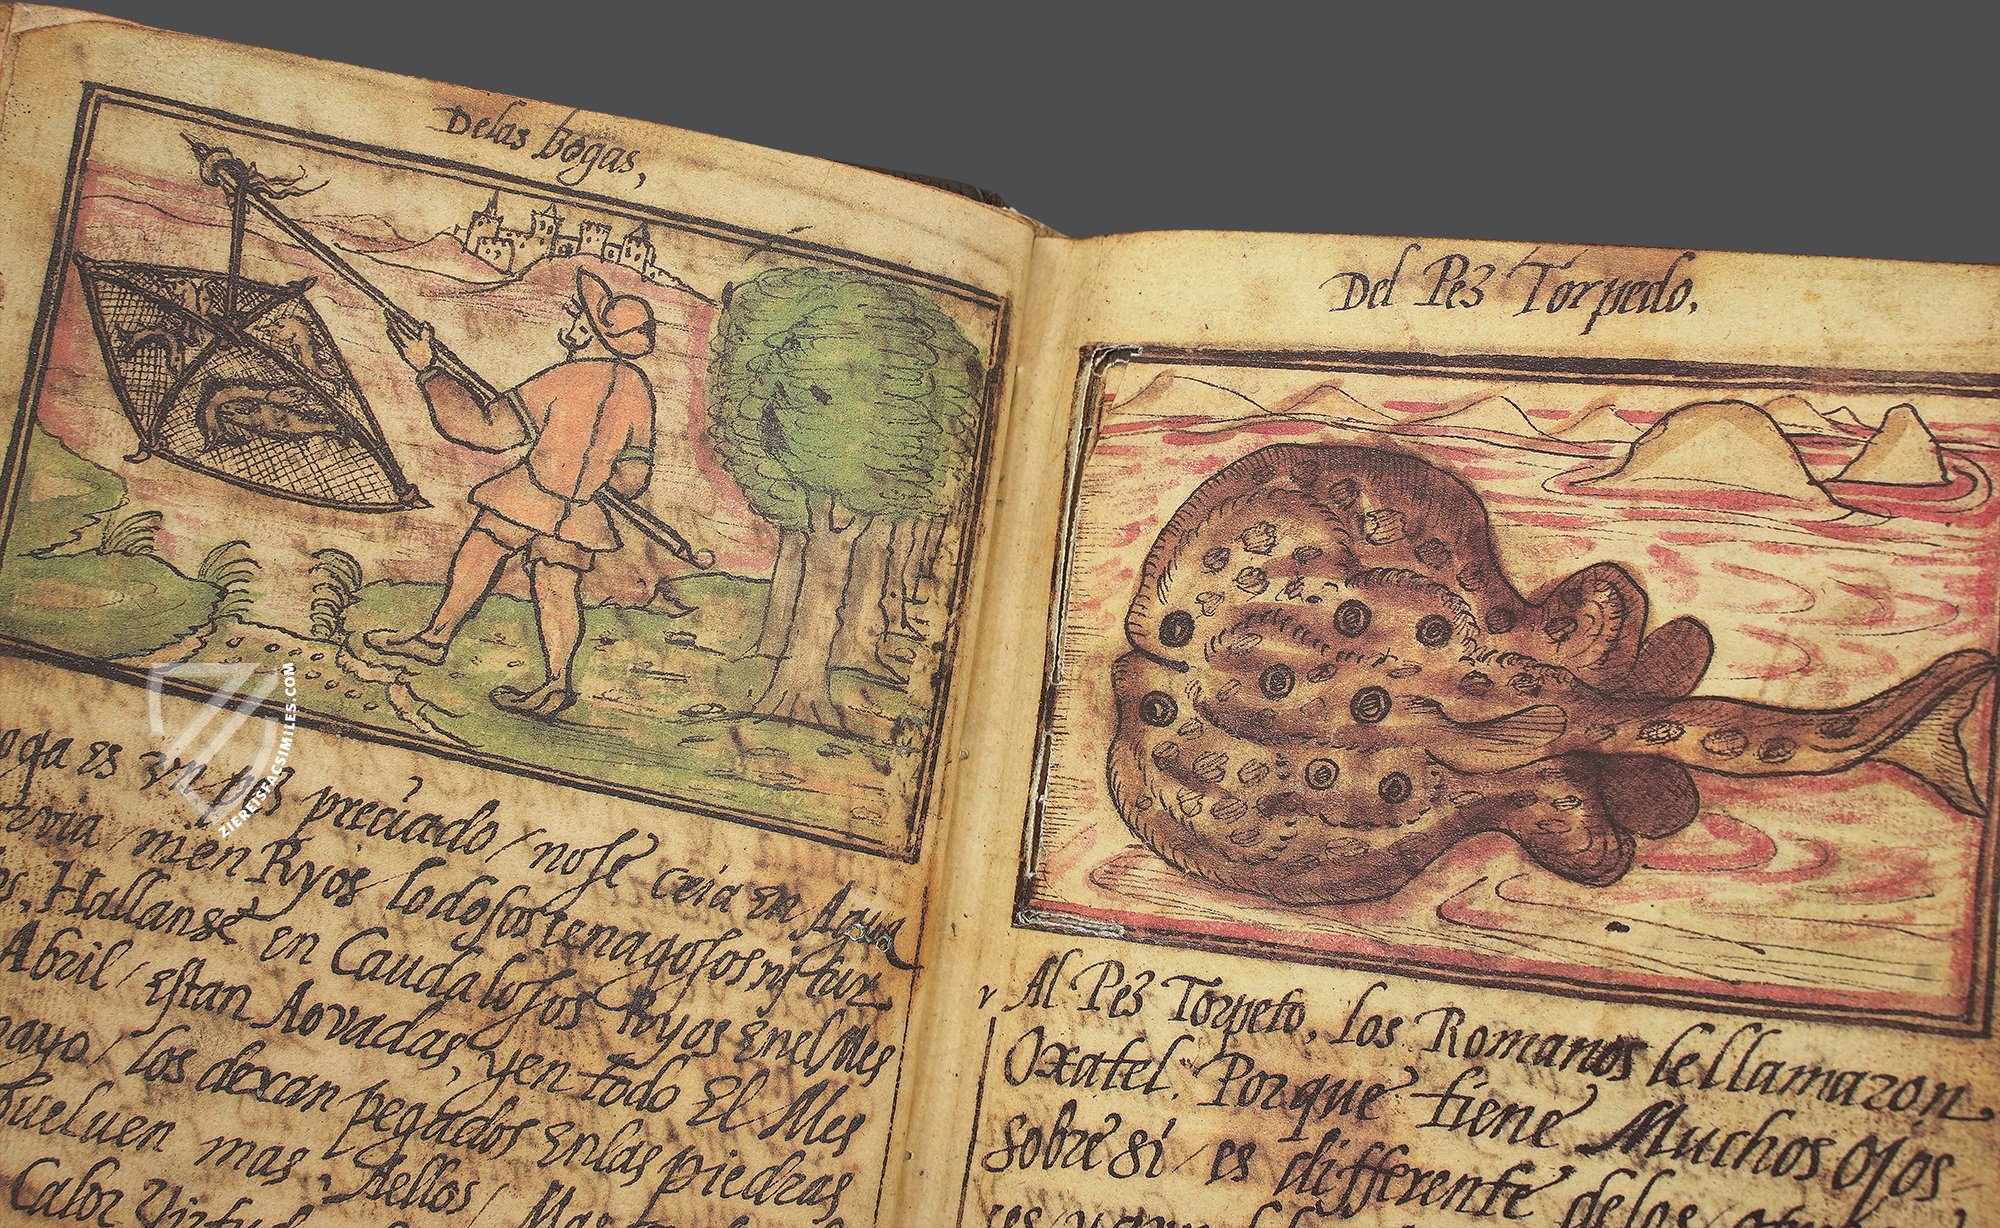 Delas bogas,
oga es vn pez preciado / nose cria en Agua
mien Ryos lodosos tenagosos ni tur
Hallanse en Caudalosos Ryos enel Mes
Abril / estan Aovadas, yen todo El Mes
mayo / los dexan pegados enlas piedras
bueluen mas, Aellos / Mas
Calor Virtud
Del Pez Torpedo.
Al Pez Torpeto, los Romanos lellamaron
Oxatel. Porque tiene Muchos Ojos
sobre si / es differente delos
ZIEREISFACSIMILES.COM